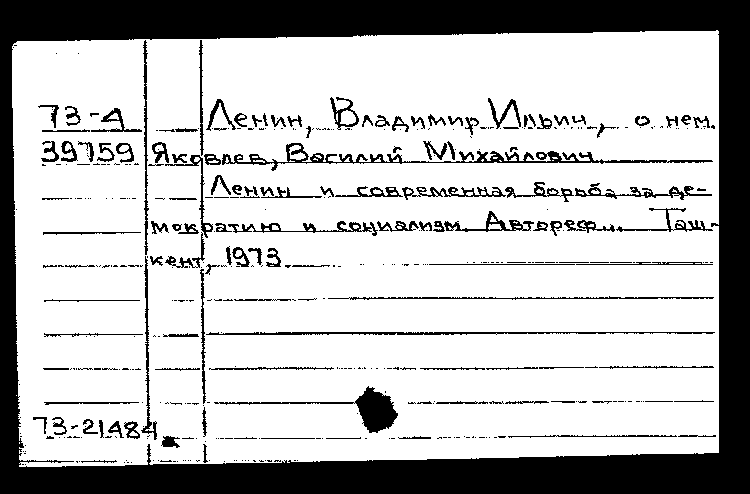 73-4 Ленин, Владимир Ильич, о нем.
39759 Яковлев, Василий Михайлович.
Ленин и современная борьба за де-
мократию и социализм. Автореф... Таш-
кент, 1973.
73-21484